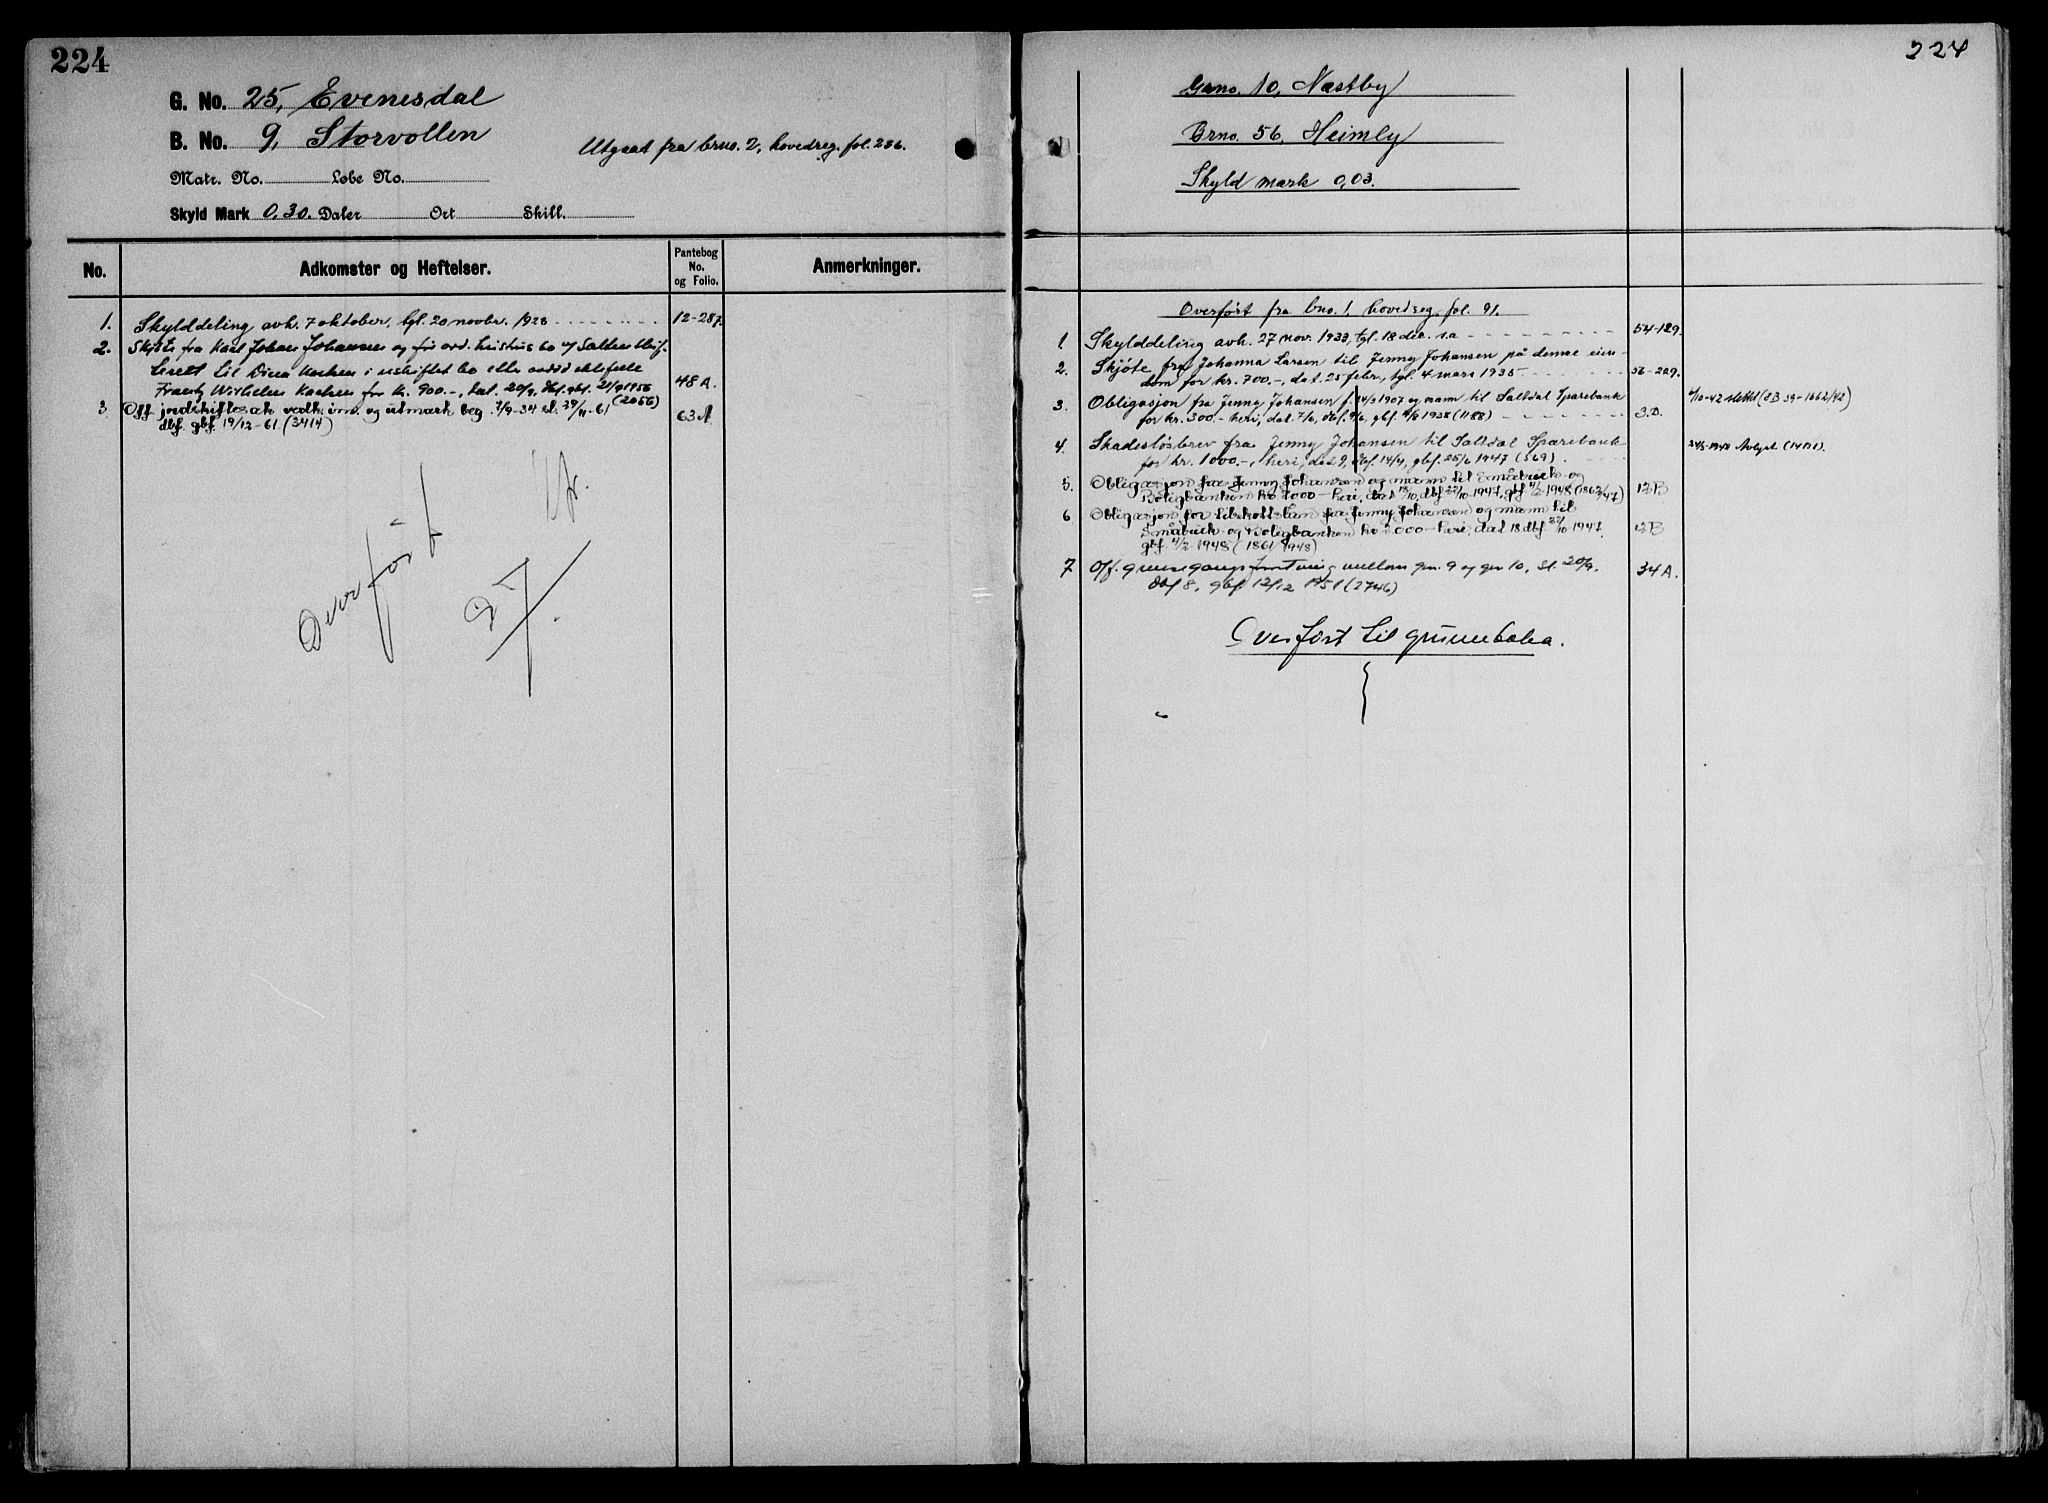 224
G. No. 25, Evenesdal
B. No. 9, Storvollen
Utgaat fra brno. 2, hovedreg. fol. 236.
Matr. No. Løbe No.
Skyld Mark 0,30. Daler Ort Skill.
No. Adkomster og Heftelser. Pantebog No. og Folio. Anmerkninger.
1. Skylddeling avh. 7 oktober, tgl. 20 novbr. 1928 12-287.
2. Skjøte fra Karl Johan Johansen og for avd. hustrus bo v/ Salten
til Dina i uskiftet bo etter avdød ektefelle
Frantz Wilhelm for kr. 900.-, dat. 20/9, dbf. gbf. 21/9 1956 (2056) 48 A.
3. Off. jordskiftesak vedk. inn. og utmark beg. 7/9-34 sl. 29/11-61
dbf. gbf. 19/12-61 (3414) 63 A
Overført
27/
224
Grno. 10, Næstby
Brno. 56, Heimly
Skyld mark 0,03.
Overført fra bno. 1, hovedreg. fol. 91.
1. Skylddeling avh. 27 nov. 1933, tgl. 18 des. s.a. 54-129.
2. Skjøte fra Johanna Larsen til Jenny Johansen på denne eien-
dom for kr. 700.-, dat. 25 febr., tgl. 4 mars 1935 56-229.
3. Obligasjon fra Jenny Johansen f. 14/3 1907 og mann til Saltdal Sparebank
for kr. 300.- heri, dat. 7/6, dbf. 9/6, gbf. 1938 (1188) 3.B. 1/10-42 slettet (2B 39-1662/42)
4. Skadesløsbrev fra Jenny Johansen til Saltdal Sparebank
for kr. 1000.-, heri, dat. 9, dbf. 14/4, gbf. 25/6 1947 (569). 24/5-1948 Avlyst
5. Obligasjon fra Jenny Johansen og mann til Småbruk- og
Boligbanken kr 7000 - heri, dat 18/10, dbf 22/10-1947, gbf 4/2-1948 (1862/47) 12 B
6 Obligasjon for tilskottslån fra Jenny Johansen og mann til
Småbruk- og Boligbanken kr 3000 - heri, dat 18 dbf 22/10-1947,
gbf 4/2-1948 (1861/1948) 12 B
7 Off. grensegangsforretning mellom gnr. 9 og gnr 10, sl. 20/9,
dbf 8, gbf 12/12 1951 (2746) 34 A.
Overført til grunnboka.